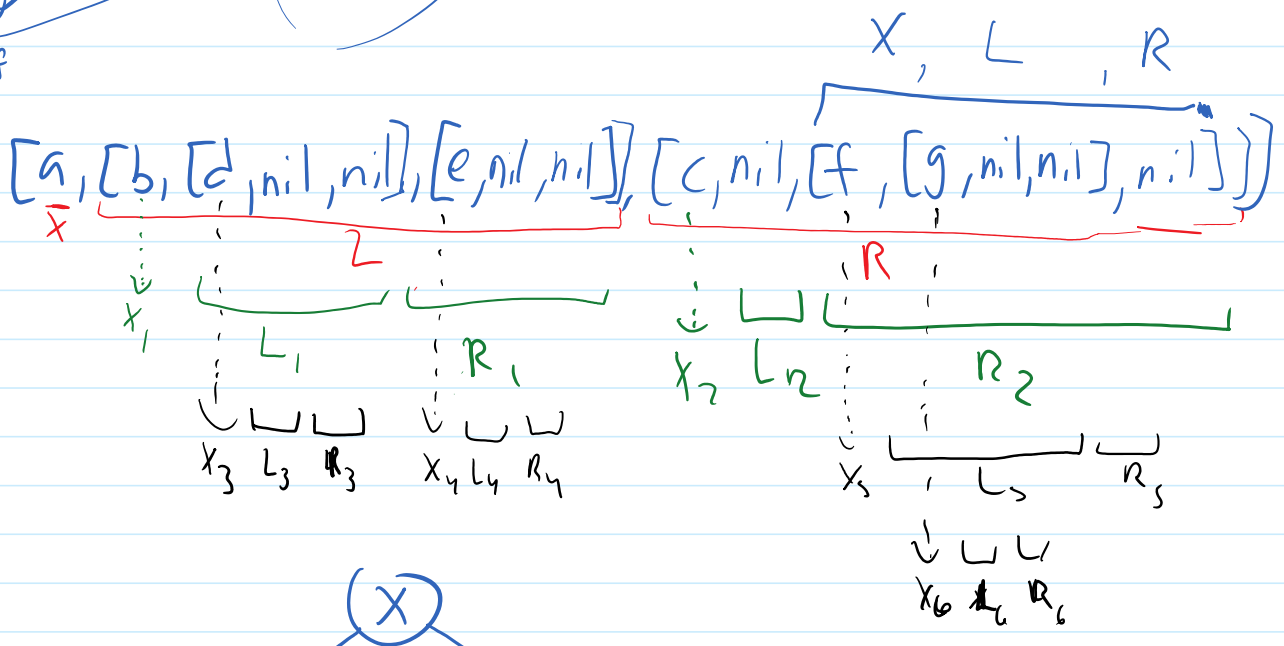 X , L , R
[a, [b, [d, nil, nil], [e, nil, nil]], [c, nil, [f, [g, nil, nil], nil]]]
X L R
X1 L1 R1 X2 L2 R2
X3 L3 R3 X4 L4 R4 X5 L5 R5
X6 L6 R6
X